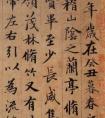 年歲在癸丑暮春
稽山陰之蘭亭脩
賢畢至少長咸集
領茂林脩竹又有
帶左右引以為流